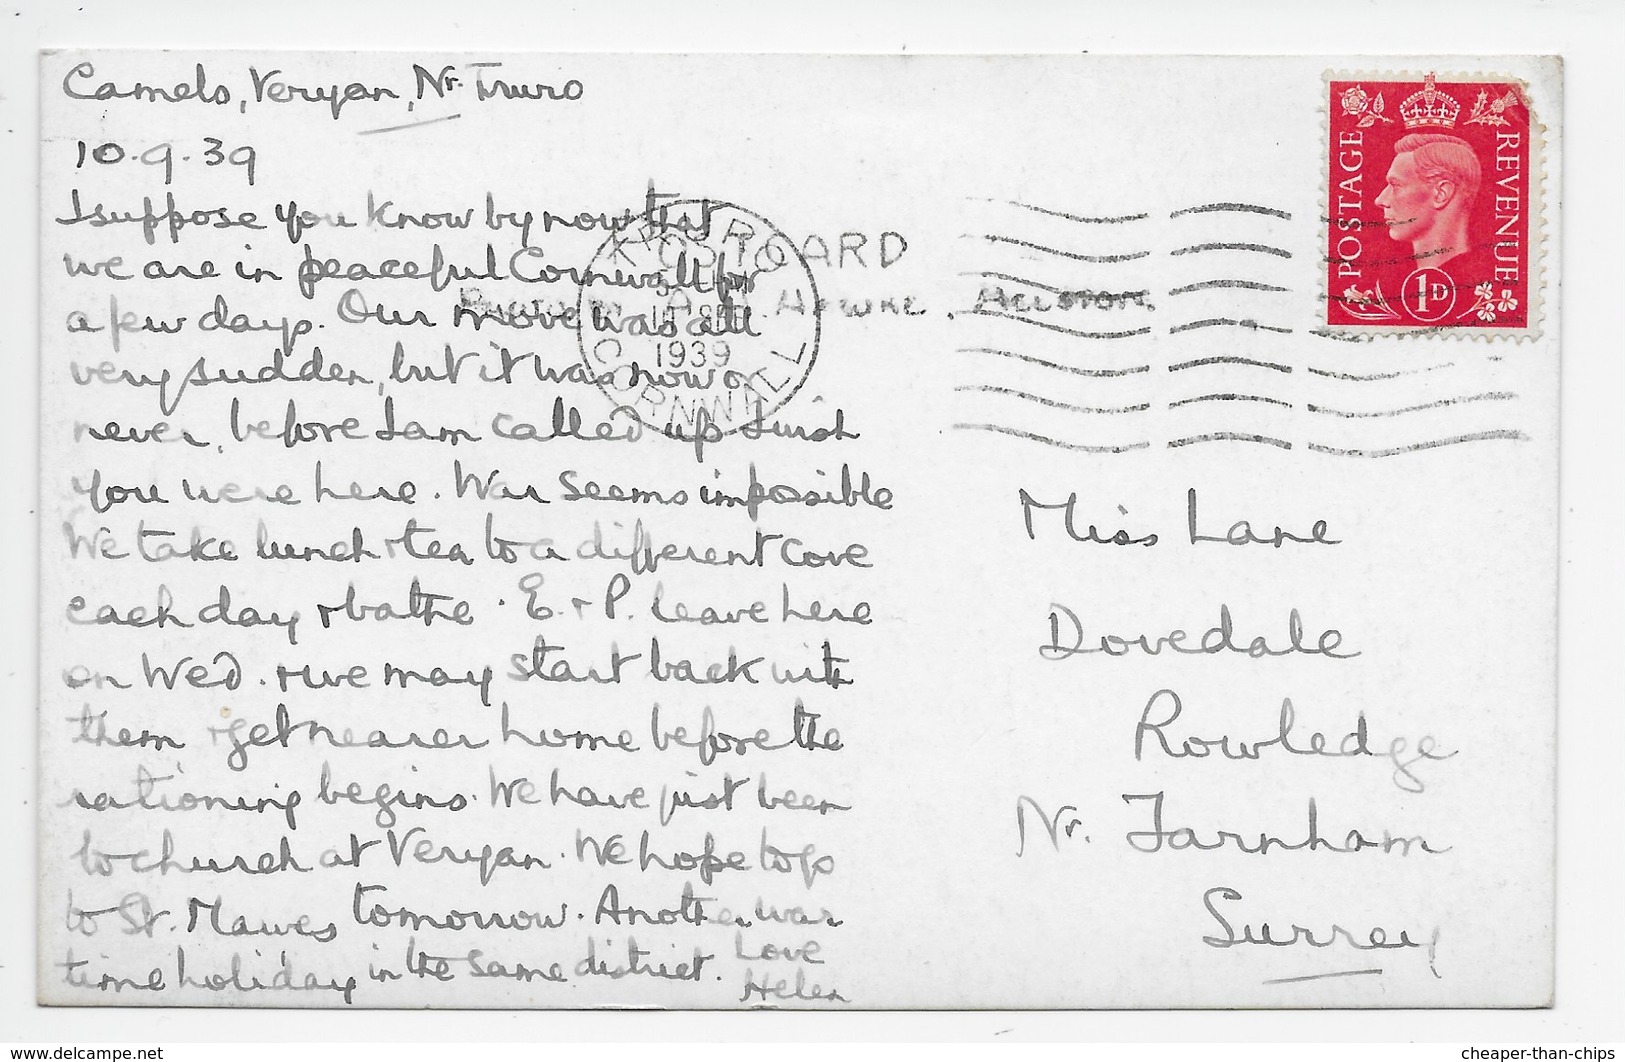 Camels, Veryan, Nr. Truro
10.9.39
I suppose you know by now that
we are in peaceful Cornwall for
a few days. Our move was all
very sudden, but it was now or
never, before I am called up I wish
you were here. War seems impossible
We take lunch + tea to a different cove
each day + bathe. E. + P. leave here
on Wed. + we may start back with
them + get nearer home before the
rationing begins. We have just been
to church at Veryan. We hope to go
to St. Mawes tomorrow. Another war
time holiday in the same district. Love
Helen
POSTCARD
A. Hawke, Helston.
1939
CORNWALL
POSTAGE
REVENUE
1D
Miss Lane
Dovedale
Rowledge
Nr. Farnham
Surrey
www.delcampe.net
cheaper-than-chips